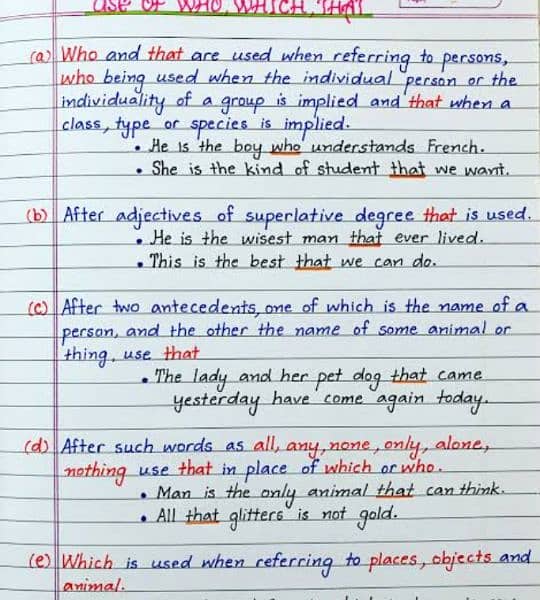 USE OF WHO, WHICH, THAT
(a) Who and that are used when referring to persons,
who being used when the individual person or the
individuality of a group is implied and that when a
class, type or species is implied.
• He is the boy who understands French.
• She is the kind of student that we want.
(b) After adjectives of superlative degree that is used.
• He is the wisest man that ever lived.
• This is the best that we can do.
(c) After two antecedents, one of which is the name of a
person, and the other the name of some animal or
thing, use that
• The lady and her pet dog that came
yesterday have come again today.
(d) After such words as all, any, none, only, alone,
nothing use that in place of which or who.
• Man is the only animal that can think.
• All that glitters is not gold.
(e) Which is used when referring to places, objects and
animal.